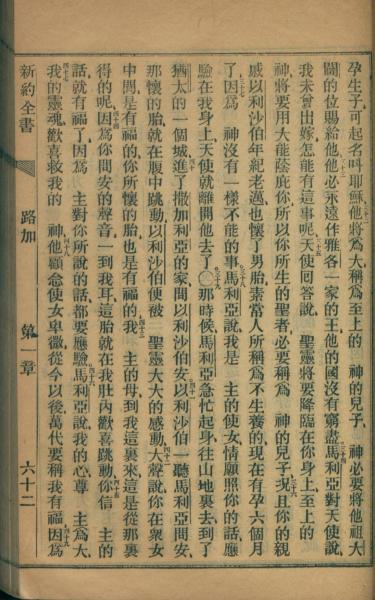 孕生子可起名叫耶穌他將爲大稱爲至上的 神的兒子 神必要將他祖大
闢的位賜給他他必永遠作雅各一家的王他的國沒有窮盡馬利亞對天使說
我未曾出嫁怎能有這事呢天使回答說 聖靈將要降臨在你身上至上的
神將要用大能蔭庇你所以你所生的聖者必要稱爲 神的兒子況且你的親
戚以利沙伯年紀老邁也懷了男胎素常人所稱爲不生養的現在有孕六個月
了因爲 神沒有一樣不能的事馬利亞說我是 主的使女情願照你的話應
驗在我身上天使就離開他去了〇那時候馬利亞急忙起身往山地裏去到了
猶太的一個城進了撒加利亞的家問以利沙伯安以利沙伯一聽馬利亞問安
那懷的胎就在腹中跳動以利沙伯便被 聖靈大大的感動大聲說你在衆女
中間是有福的你所懷的胎也是有福的我 主的母到我這裏來這是從那裏
得的呢因爲你問安的聲音一到我耳這胎就在我肚內歡喜跳動你信 主的
話就有福了因爲 主對你所說的話都要應驗馬利亞說我的心尊 主爲大
我的靈魂歡喜救我的 神他顧念使女卑微從今以後萬代要稱我有福因爲
新約全書 路加 第一章 六十二